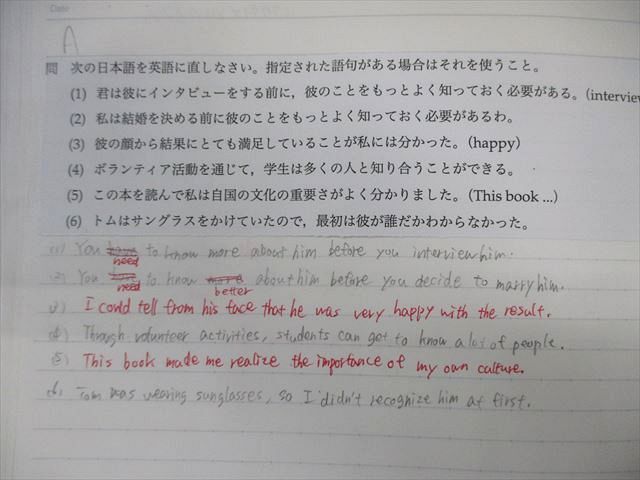 Date
A
問 次の日本語を英語に直しなさい。指定された語句がある場合はそれを使うこと。
(1) 君は彼にインタビューをする前に，彼のことをもっとよく知っておく必要がある。(interview
(2) 私は結婚を決める前に彼のことをもっとよく知っておく必要があるわ。
(3) 彼の顔から結果にとても満足していることが私には分かった。(happy)
(4) ボランティア活動を通じて，学生は多くの人と知り合うことができる。
(5) この本を読んで私は自国の文化の重要さがよく分かりました。(This book ...)
(6) トムはサングラスをかけていたので，最初は彼が誰だかわからなかった。
(1) You have to know more about him before you interview him.
need
(2) You have to know more about him before you decide to marry him.
need better
(3) I could tell from his face that he was very happy with the result.
(4) Through volunteer activities, students can get to know a lot of people.
(5) This book made me realize the importance of my own culture.
(6) Tom was wearing sunglasses, so I didn't recognize him at first.